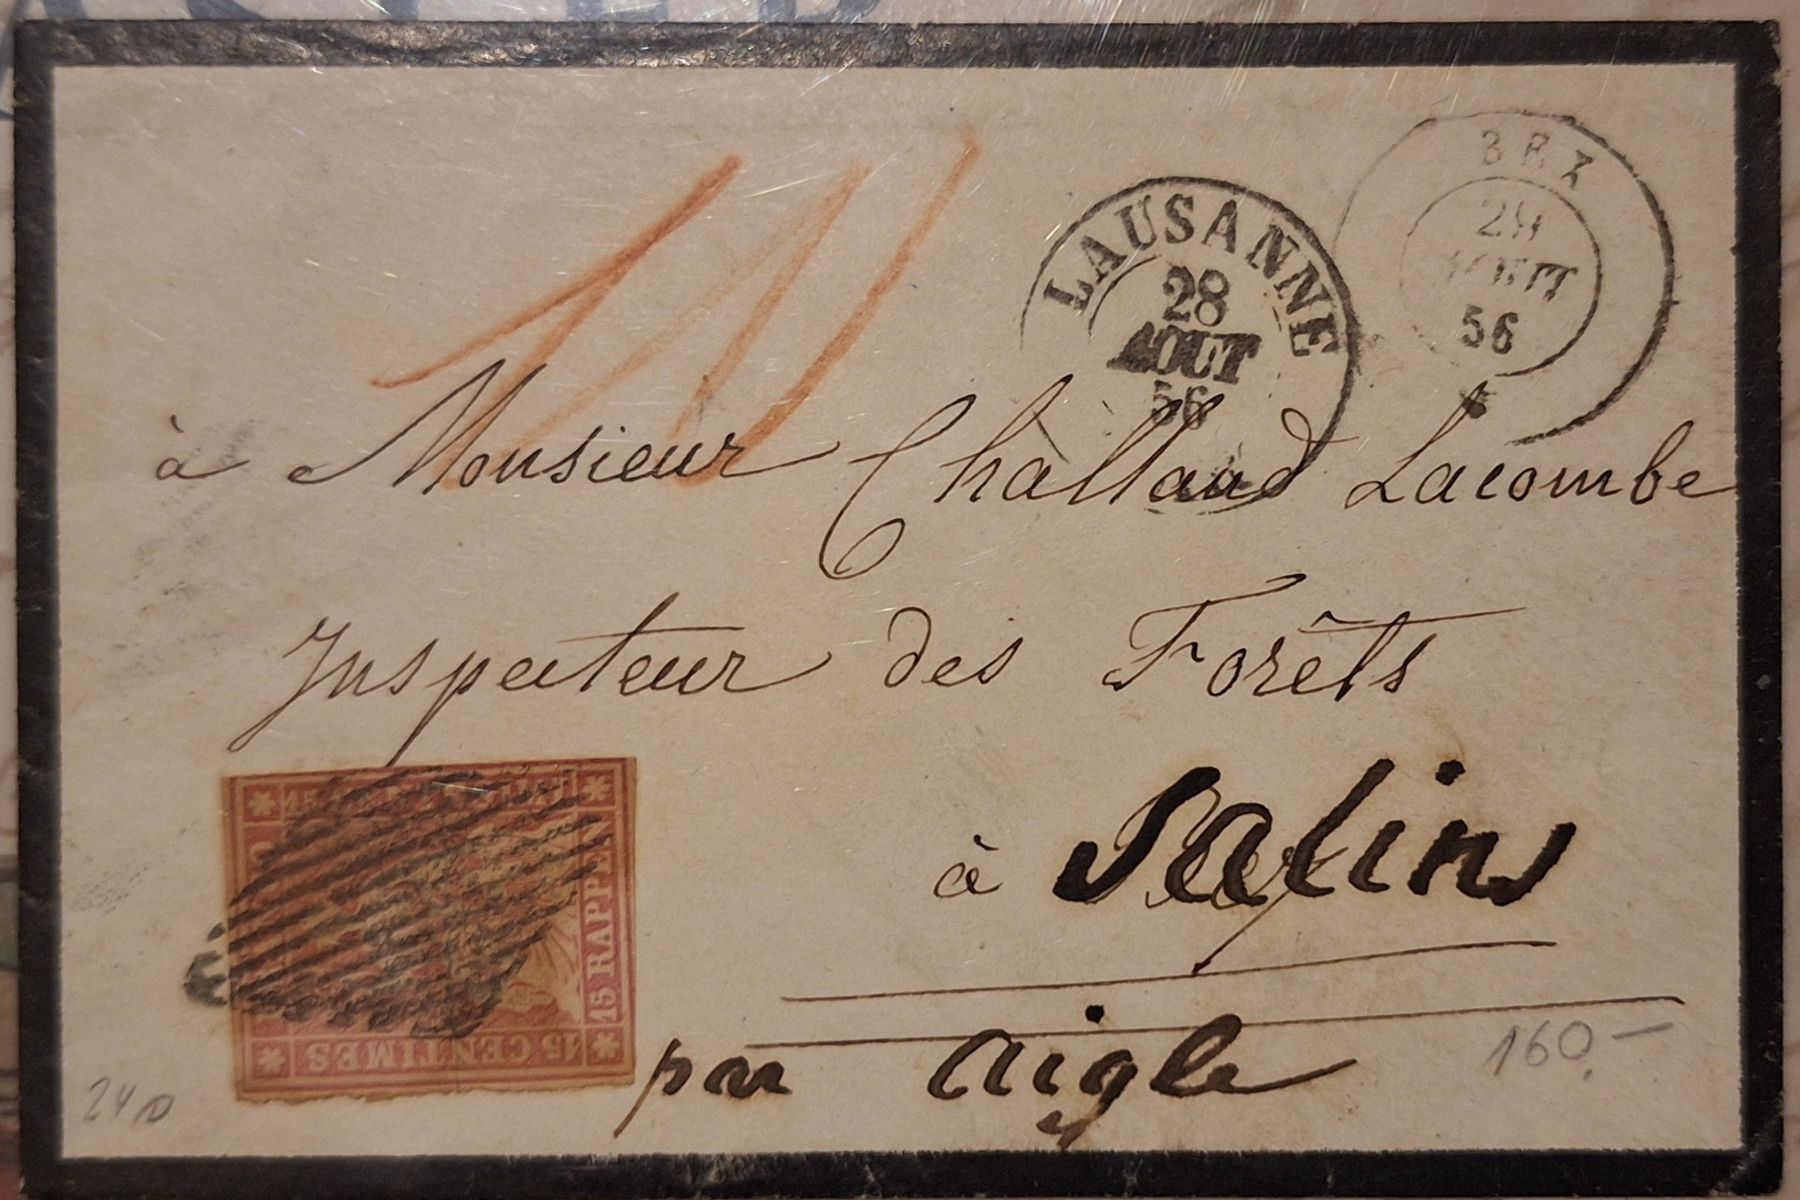 BEX
29
AOUT
56
LAUSANNE
28
AOUT
56
à Monsieur Challand Lacombe
Inspecteur des Forêts
à Salins
par Aigle
15 RAPPEN
15 CENTIMES
160.-
24